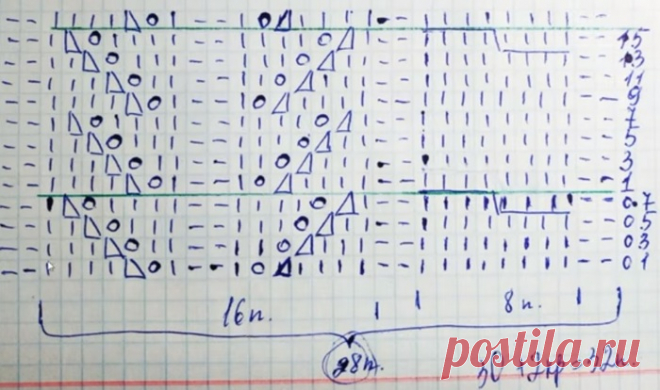 15
13
11
9
7
5
3
1
07
05
03
01
16п. 8п.
28п.
postila.ru